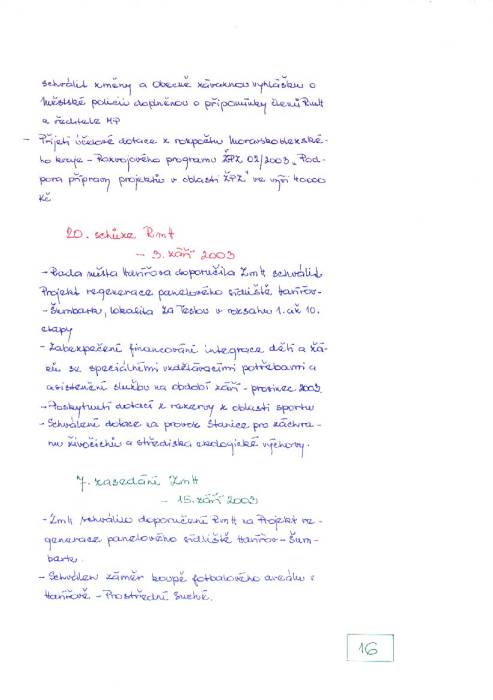 schválit změny a Obecně závaznou vyhlášku o
Městské policii doplněnou o připomínky členů RmH
a ředitele MP
- Přijetí účelové dotace z rozpočtu Moravskoslezské-
ho kraje - Rozvojového programu ŽPZ 02/2003 „Pod-
pora přípravy projektů v oblasti ŽPZ" ve výši 40000
Kč
20. schůze RmH
- 3. září 2003
- Rada města Havířova doporučila ZmH schválit
Projekt regenerace panelového sídliště Havířov-
- Šumbark, lokalita Za Teslou v rozsahu 1. až 10.
etapy
- Zabezpečení financování integrace dětí a žá-
ků se speciálními vzdělávacími potřebami a
asistenční službu na období září - prosinec 2003
- Poskytnutí dotací z rezervy z oblasti sportu
- Schválení dotace na provoz Stanice pro záchra-
nu živočichů a střediska ekologické výchovy.
7. zasedání ZmH
- 15. září 2003
- ZmH schválilo doporučení RmH na Projekt re-
generace panelového sídliště Havířov - Šum-
bark.
- Schválen záměr koupě fotbalového areálu v
Havířově - Prostřední Suché.
16